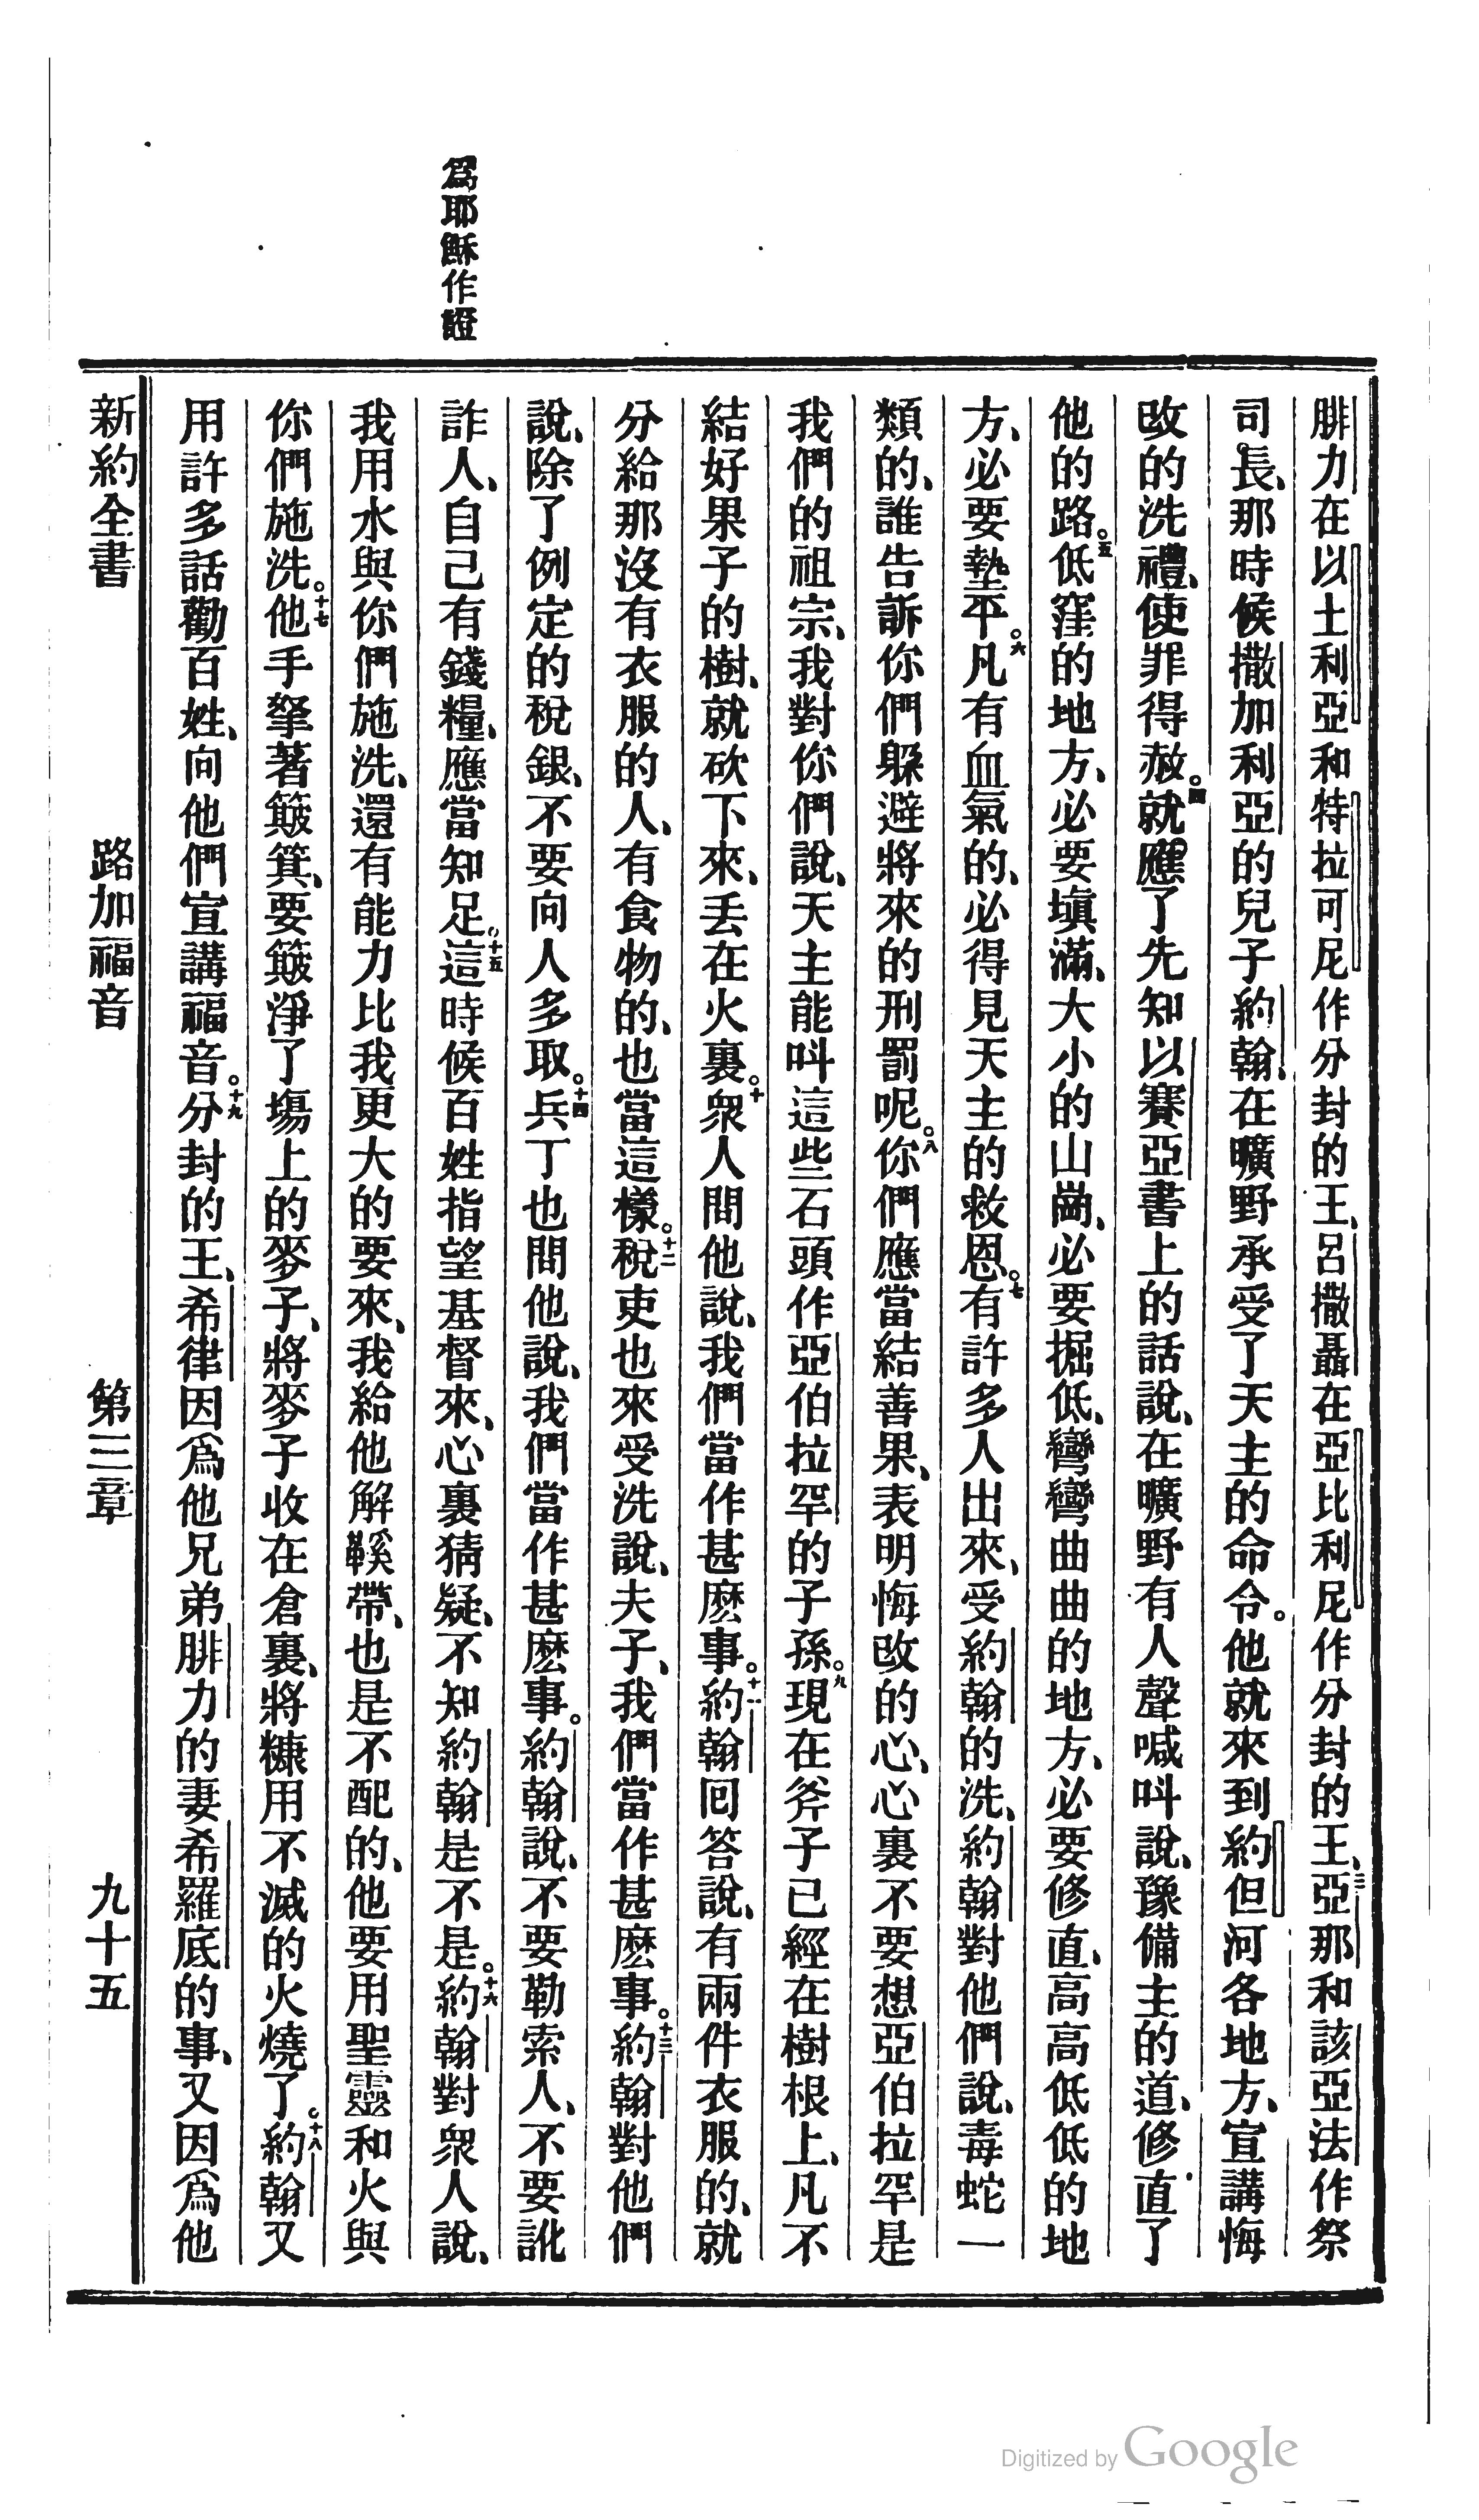 爲耶穌作證
腓力在以土利亞和特拉可尼作分封的王、呂撒聶在亞比利尼作分封的王、三亞那和該亞法作祭
司長、那時候撒加利亞的兒子約翰、在曠野承受了天主的命令。他就來到約但河各地方、宣講悔
改的洗禮、使罪得赦。四就應了先知以賽亞書上的話說、在曠野有人聲喊叫說、豫備主的道、修直了
他的路。五低窪的地方、必要塡滿、大小的山崗、必要掘低、彎彎曲曲的地方、必要修直、高高低低的地
方、必要墊平。六凡有血氣的、必得見天主的救恩。七有許多人出來、受約翰的洗、約翰對他們說、毒蛇一
類的、誰告訴你們躱避將來的刑罰呢。八你們應當結善果、表明悔改的心、心裏不要想亞伯拉罕是
我們的祖宗、我對你們說、天主能叫這些石頭作亞伯拉罕的子孫。九現在斧子已經在樹根上、凡不
結好果子的樹、就砍下來、丢在火裏。十衆人問他說、我們當作甚麽事。十一約翰囘答說、有兩件衣服的、就
分給那沒有衣服的人、有食物的、也當這樣。十二稅吏也來受洗說、夫子、我們當作甚麽事。十三約翰對他們
說、除了例定的稅銀、不要向人多取。十四兵丁也問他說、我們當作甚麽事。約翰說、不要勒索人、不要訛
詐人、自己有錢糧、應當知足。十五這時候百姓指望基督來、心裏猜疑、不知約翰是不是。十六約翰對衆人說、
我用水與你們施洗、還有能力比我更大的要來、我給他解鞵帶、也是不配的、他要用聖靈和火與
你們施洗。十七他手拏著簸箕、要簸淨了塲上的麥子、將麥子收在倉裏、將糠用不滅的火燒了。十八約翰又
用許多話勸百姓、向他們宣講福音。十九分封的王、希律因爲他兄弟腓力的妻希羅底的事、又因爲他
新約全書　路加福音　第三章　九十五
Digitized by Google